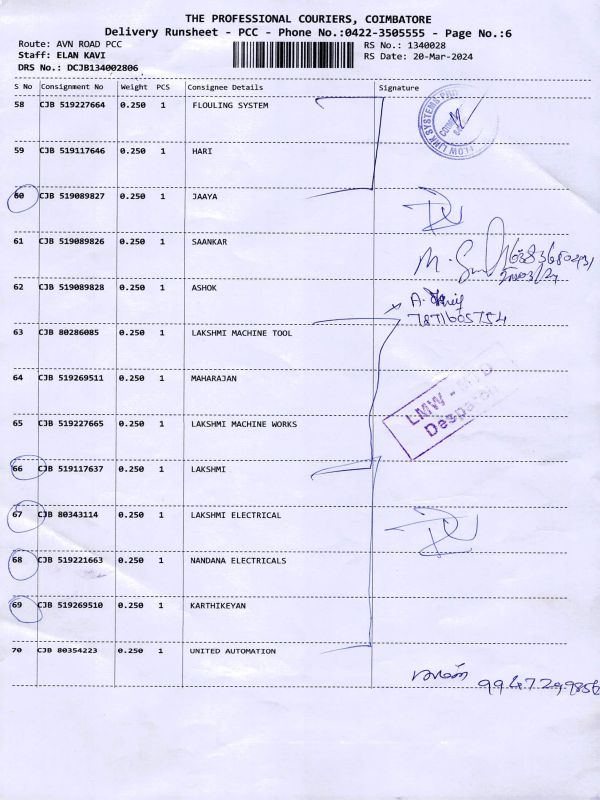 THE PROFESSIONAL COURIERS, COIMBATORE
Delivery Runsheet - PCC - Phone No.:0422-3505555 - Page No.:6
Route: AVN ROAD PCC RS No.: 1340028
Staff: ELAN KAVI RS Date: 20-Mar-2024
DRS No.: DCJB134002806
S No Consignment No Weight PCS Consignee Details Signature
58 CJB 519227664 0.250 1 FLOULING SYSTEM
59 CJB 519117646 0.250 1 HARI
60 CJB 519089827 0.250 1 JAAYA
61 CJB 519089826 0.250 1 SAANKAR
62 CJB 519089828 0.250 1 ASHOK
A.
7871605754
63 CJB 80286085 0.250 1 LAKSHMI MACHINE TOOL
64 CJB 519269511 0.250 1 MAHARAJAN
LMW -
65 CJB 519227665 0.250 1 LAKSHMI MACHINE WORKS
66 CJB 519117637 0.250 1 LAKSHMI
67 CJB 80343114 0.250 1 LAKSHMI ELECTRICAL
68 CJB 519221663 0.250 1 NANDANA ELECTRICALS
69 CJB 519269510 0.250 1 KARTHIKEYAN
70 CJB 80354223 0.250 1 UNITED AUTOMATION